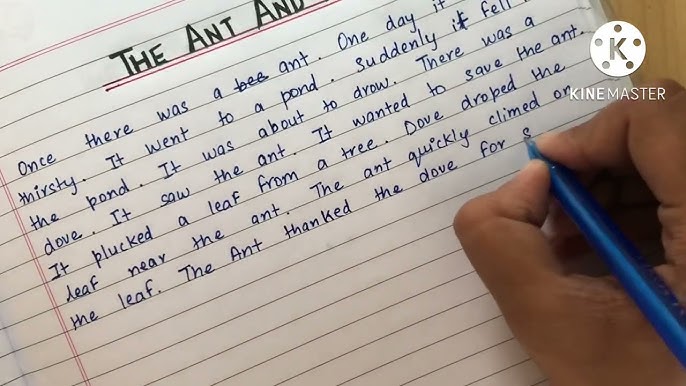 THE ANT AND
Once there was a bee ant. One day it
thirsty. It went to a pond. Suddenly it fell
the pond. It was about to drow. There was a
dove. It saw the ant. It wanted to save the ant.
It plucked a leaf from a tree. Dove droped the
leaf near the ant. The ant quickly climed on
the leaf. The Ant thanked the dove for s
KINEMASTER